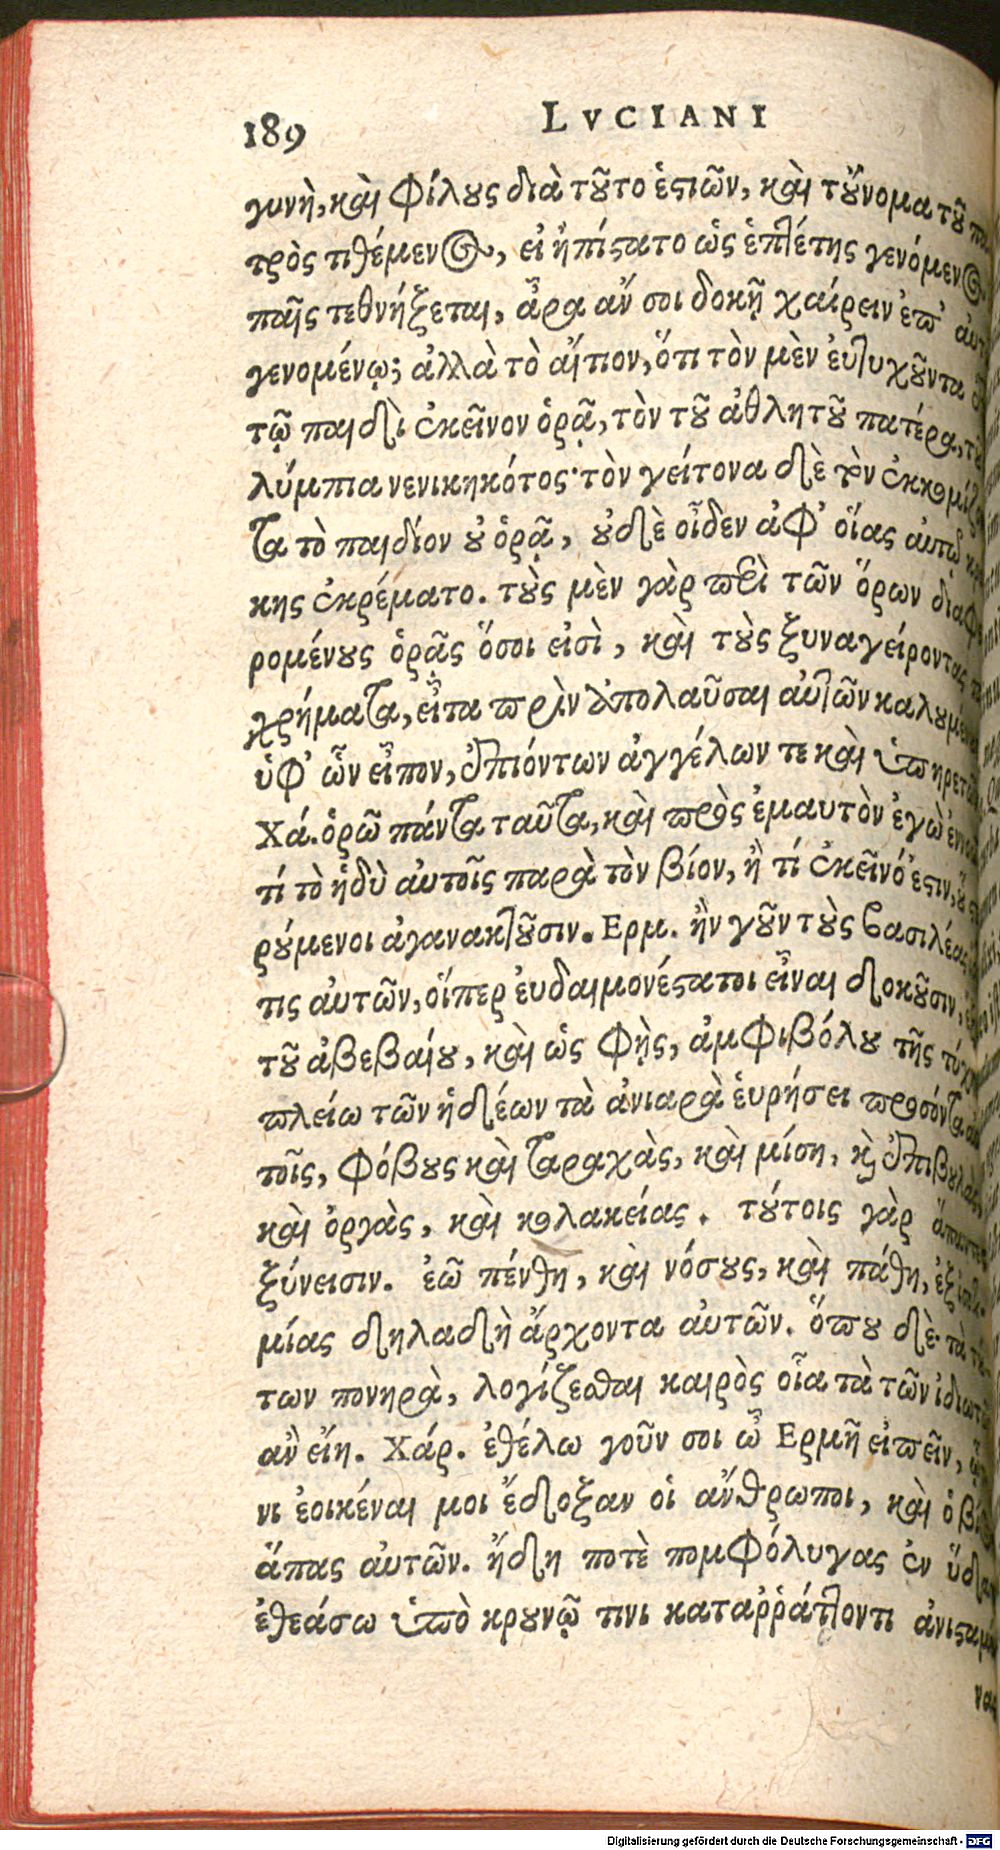 189 LVCIANI
γυνὴ, καὶ φίλους διὰ τοῦτο ἑστιῶν, καὶ τοὔνομα τοῦ
τρὸς τιθέμενος, εἰ ἠπίστατο ὡς ἑπτέτης γενόμενος
παῖς τεθνήξεται, ἆρα ἄν σοι δοκῇ χαίρειν ἐπ'
γενομένῳ; ἀλλὰ τὸ αἴτιον, ὅτι τὸν μὲν εὐτυχοῦντα
τῷ παιδὶ ἐκεῖνον ὁρᾷ, τὸν τοῦ ἀθλητοῦ πατέρα,
λύμπια νενικηκότος· τὸν γείτονα δὲ τὸν
τα τὸ παιδίον οὐ ὁρᾷ, οὐδὲ οἶδεν ἀφ' οἵας αὐτῷ
κης ἐκρέματο. τοὺς μὲν γὰρ περὶ τῶν ὅρων
ρομένους ὁρᾷς ὅσοι εἰσὶ, καὶ τοὺς ξυναγείροντας
χρήματα, εἶτα πρὶν ἀπολαῦσαι αὐτῶν
ὑφ' ὧν εἶπον, ἐπιόντων ἀγγέλων τε καὶ
Χά. ὁρῶ πάντα ταῦτα, καὶ πρὸς ἐμαυτὸν ἐγὼ
τί τὸ ἡδὺ αὐτοῖς παρὰ τὸν βίον, ἢ τί ἐκεῖνό ἐστιν,
ρούμενοι ἀγανακτοῦσιν. Ερμ. ἢν γοῦν τοὺς βασιλέας
τις αὐτῶν, οἵπερ εὐδαιμονέστατοι εἶναι δοκοῦσιν,
τοῦ ἀβεβαίου, καὶ ὡς φῂς, ἀμφιβόλου τῆς
πλείω τῶν ἡδέων τὰ ἀνιαρὰ εὑρήσει προσόντα
τοῖς, φόβους καὶ ταραχὰς, καὶ μίση, καὶ ἐπιβουλὰς
καὶ ὀργὰς, καὶ κολακείας. τούτοις γὰρ ἅπαντες
ξύνεισιν. ἐῶ πένθη, καὶ νόσους, καὶ πάθη,
μίας δηλαδὴ ἄρχοντα αὐτῶν. ὅπου δὲ τὰ
των πονηρὰ, λογίζεσθαι καιρὸς οἷα τὰ τῶν
ἂν εἴη. Χάρ. ἐθέλω γοῦν σοι ὦ Ερμῆ εἰπεῖν,
νι ἐοικέναι μοι ἔδοξαν οἱ ἄνθρωποι, καὶ ὁ
ἅπας αὐτῶν. ἤδη ποτὲ πομφόλυγας ἐν
ἐθεάσω ὑπὸ κρουνῷ τινι καταῤῥάττοντι
Digitalisierung gefördert durch die Deutsche Forschungsgemeinschaft - DFG